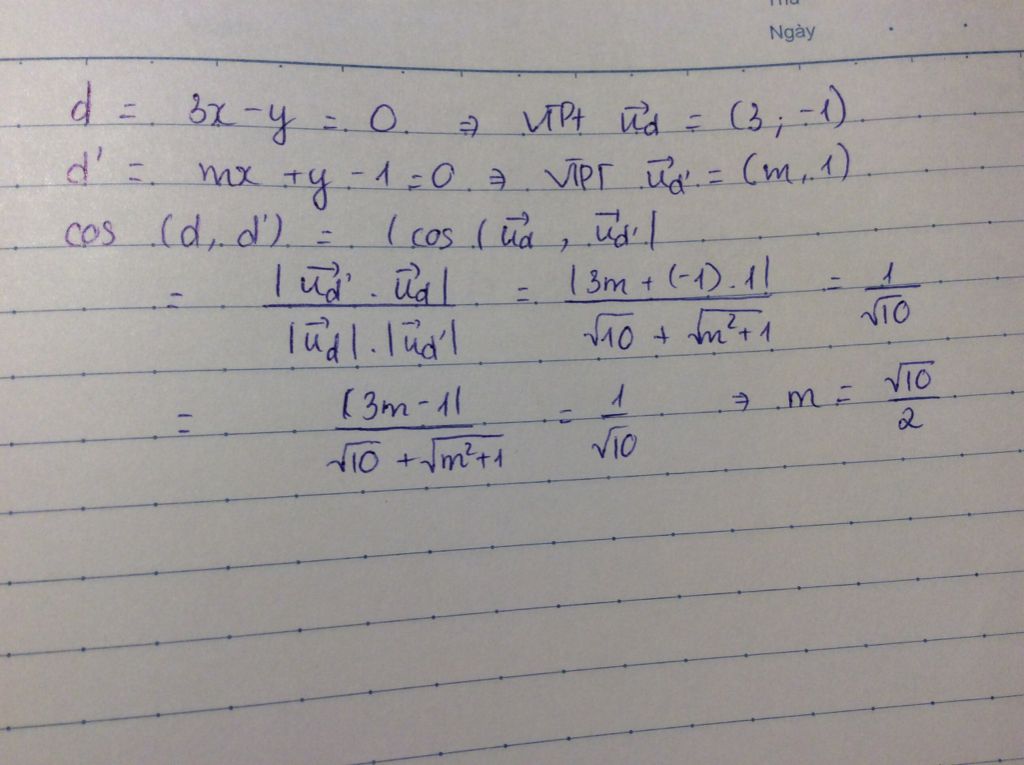 Thứ
Ngày
d = 3x - y = 0. ⇒ VTPt u⃗d = (3; -1)
d' = mx + y - 1 = 0 ⇒ VTPT u⃗d' = (m, 1)
cos (d, d') = |cos (u⃗d, u⃗d'|
= |u⃗d' . u⃗d| / |u⃗d| . |u⃗d'| = |3m + (-1) . 1| / √10 + √m²+1 = 1/√10
= |3m - 1| / √10 + √m²+1 = 1/√10 ⇒ m = √10/2